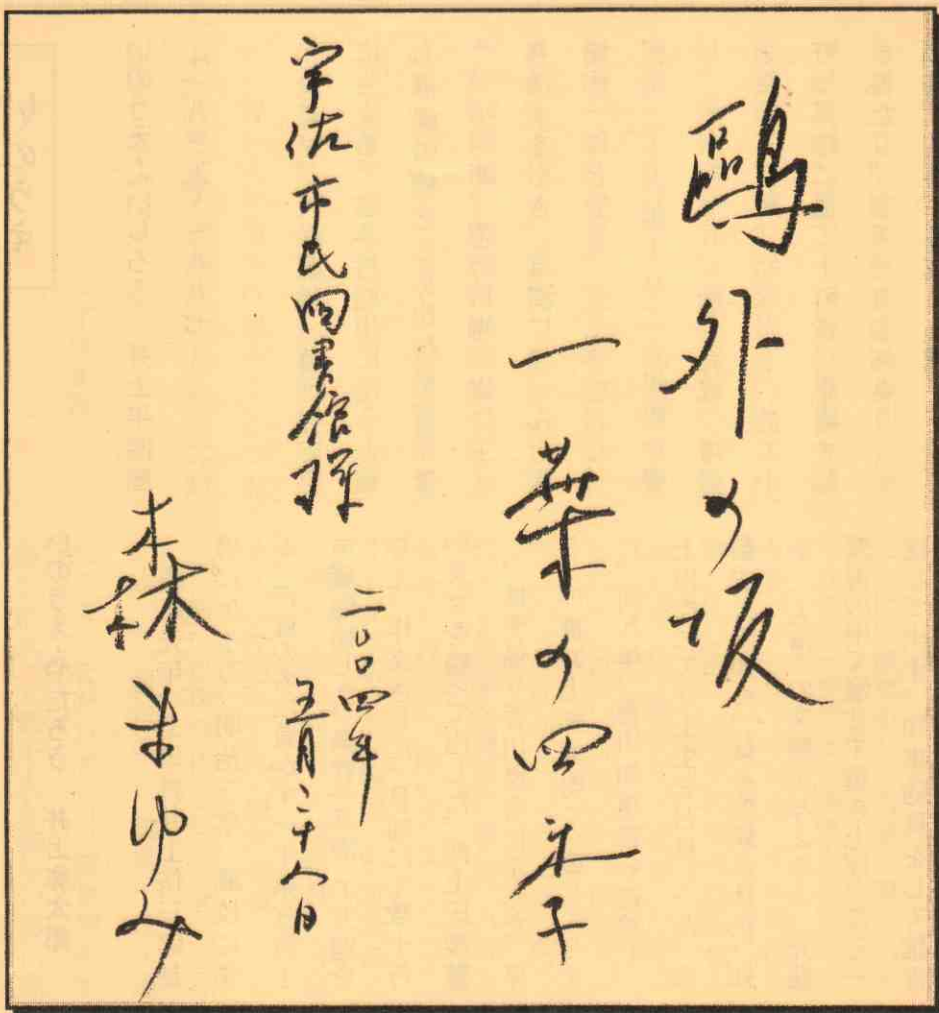 鷗外の坂
一葉の四季
宇佐市民図書館様
二〇〇四年
五月二十八日
森まゆみ